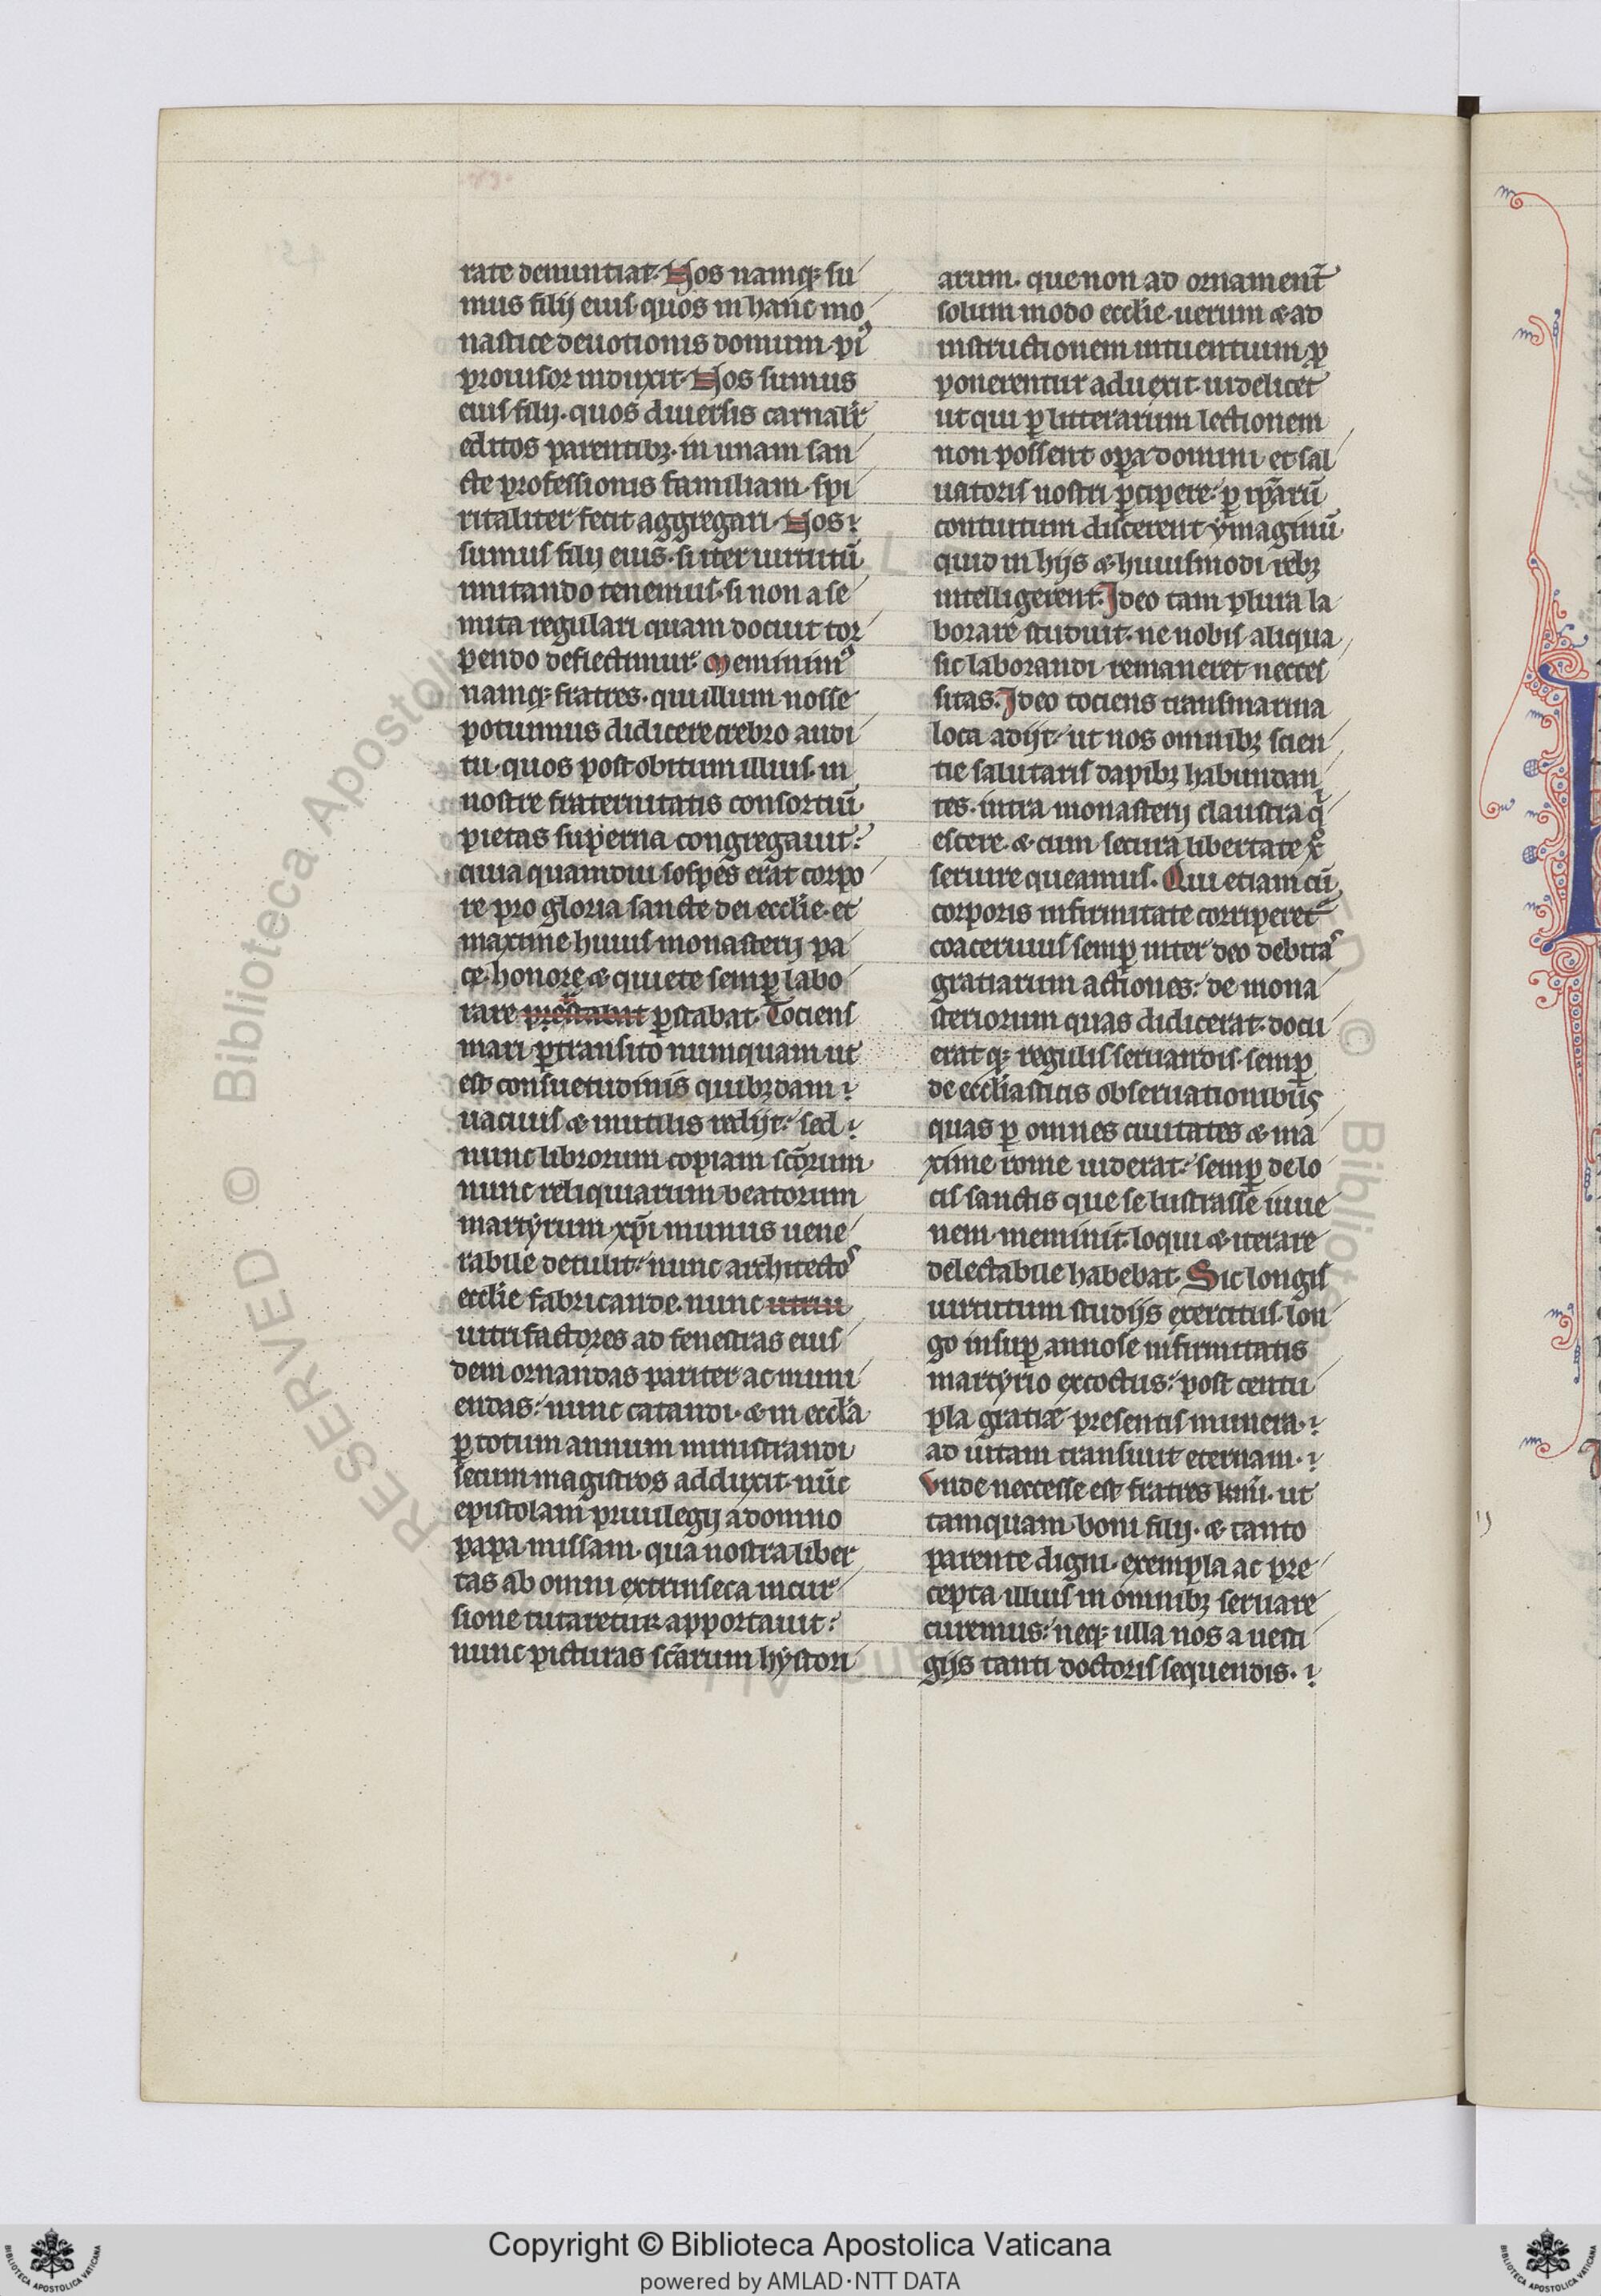 rate denuntiat. Nos namq; su
mus filij eius. quos in hanc mo
nastice deuotionis domum. pi⁹
prouisor induxit. Nos sumus
eius filij. quos diuersis carnalit̄
editos parentibꝫ. in unam san
cte professionis familiam. spi
ritaliter fecit aggregari. Nos
sumus filij eius. si iter uirtutū
imitando tenemus. si non a se
mita regulari quam docuit tor
pendo deflectimur. Meminim⁹
namq; fratres. qui illum nosse
potuimus didicere crebro audi
tu. quos post obitum illius. in
nostre fraternitatis consortiū
pietas superna congregauit.
quia quamdiu sospes erat corpo
re pro gloria sancte dei eccl̄ie. et
maxime huius monasterij pa
ce. honore & quiete semꝑ labo
rare prestabat ꝑstabat. Tociens
mari ꝑtransito numquam ut
est consuetudinis quibꝫdam
uacuus & inutilis redijt. sed
nunc librorum copiam scōrum
nunc reliquiarum beatorum
martyrum xp̄i munus uene
rabile detulit. nunc architectos
eccl̄ie fabricande. nunc uitrii
uitri factores ad fenestras eius
dem ornandas pariter ac muni
endas. nunc cātandi. & in eccl̄a
ꝑ totum annum ministrandi
secum magistros adduxit. nūc
epistolam priuilegij a domno
papa missam. qua nostra liber
tas ab omni extrinseca incur
sione tutaretur apportauit.
nunc picturas scārum hystori
arum. que non ad ornament̄
solummodo eccl̄ie. uerum & ad
instructionem intuentium. ꝓ
ponerentur aduexit. uidelicet
ut qui ꝑ litterarum lectionem
non possent opa domini et sal
uatoris nostri ꝑcipere. ꝑ ip̄arū
contuitum discerent ymaginū
quid in hijs & huiusmodi rebꝫ
intelligerent. Ideo tam plura la
borare studuit. ne nobis aliqua
sic laborandi remaneret necces
sitas. Ideo tociens transmarina
loca adijt. ut nos omnibꝫ scien
tie salutaris dapibꝫ habundan
tes. intra monasterij claustra q¹
escere. & cum secura libertate xº
seruire queamus. Qui etiam cū
corporis infirmitate corriperet᷑
coaceruus semꝑ inter deo debitas
gratiarum actiones. de mona
steriorum quas didicerat. docu
erat q; regulis seruandis. semꝑ
de eccl̄iasticis obseruationibus
quas ꝑ omnes ciuitates & ma
xime rome uiderat. semꝑ de lo
cis sanctis que se lustrasse iuue
nem meminit. loqui & iterare
delectabile habebat. Sic longis
uirtutum studijs exercitus. lon
go insuꝑ annose infirmitatis
martyrio excoctus. post centu
pla gratiæ presentis munera.
ad uitam transiuit eternam.
Vnde neccesse est fratres kmī. ut
tamquam boni filij. & tanto
parente digni. exempla ac pre
cepta illius in omnibꝫ seruare
curemus. neq; ulla nos a uesti
gijs tanti doctoris sequendis.
Copyright © Biblioteca Apostolica Vaticana
powered by AMLAD·NTT DATA